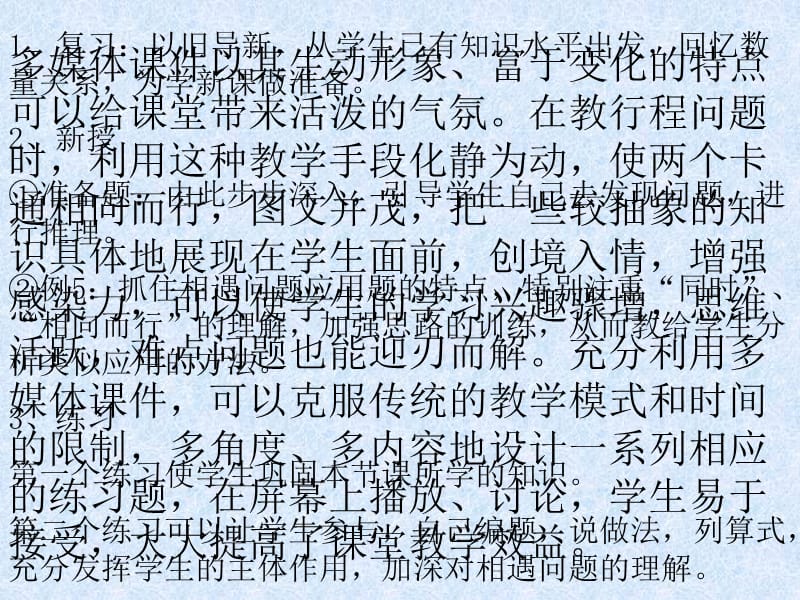 1、复习：以旧导新，从学生已有知识水平出发，回忆数
量关系，为学新课做准备。
2、新授
①准备题：由此步步深入，引导学生自己去发现问题，进
行推理。
②例5：抓住相遇问题应用题的特点，特别注重“同时”、
“相向而行”的理解，加强思路的训练，从而教给学生分
析类似应用的方法。
3、练习
第一个练习使学生巩固本节课所学的知识。
第二个练习可以让学生参与，自己编题，说做法，列算式，
充分发挥学生的主体作用，加深对相遇问题的理解。
多媒体课件以其生动形象、富于变化的特点
可以给课堂带来活泼的气氛。在教行程问题
时，利用这种教学手段化静为动，使两个卡
通相向而行，图文并茂，把一些较抽象的知
识具体地展现在学生面前，创境入情，增强
感染力，可以使学生的学习兴趣骤增，思维
活跃，难点问题也能迎刃而解。充分利用多
媒体课件，可以克服传统的教学模式和时间
的限制，多角度、多内容地设计一系列相应
的练习题，在屏幕上播放、讨论，学生易于
接受，大大提高了课堂教学效益。